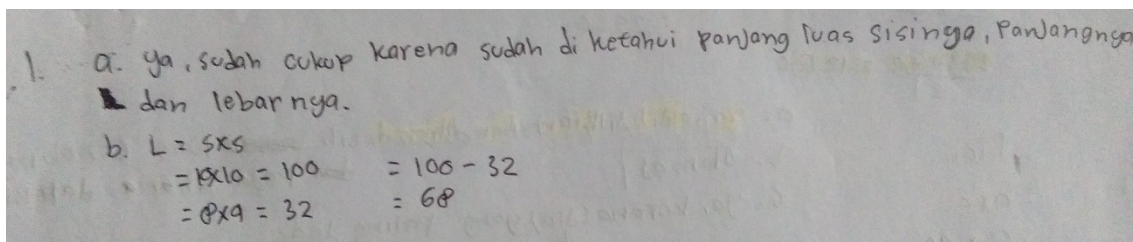 1. a. ya, sudah cukup karena sudah di ketahui panjang luas sisinya, Panjangnya
dan lebarnya.
b. L = s x s
= 10x10 = 100 = 100 - 32
= 8x9 = 32 = 68